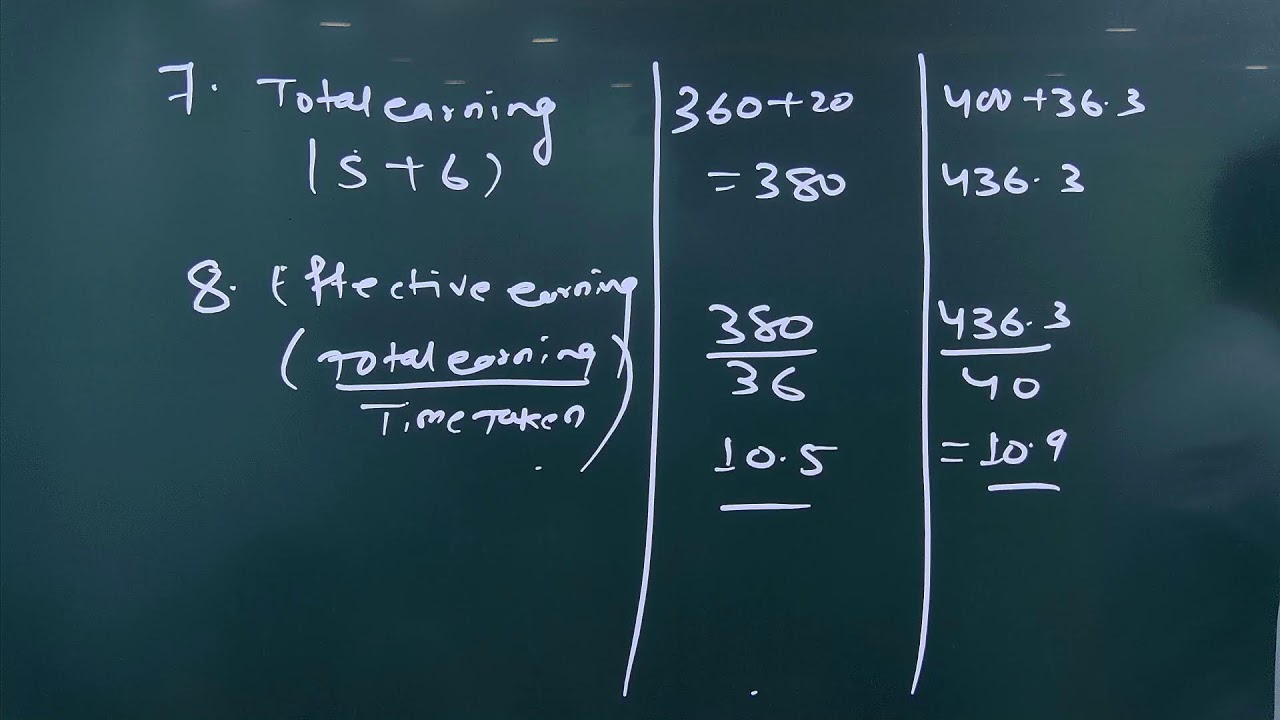 7. Total earning 360+20 400+36.3
(5+6) =380 436.3
8. Effective earning
(Total earning) 380 436.3
Time Taken 36 40
10.5 =10.9